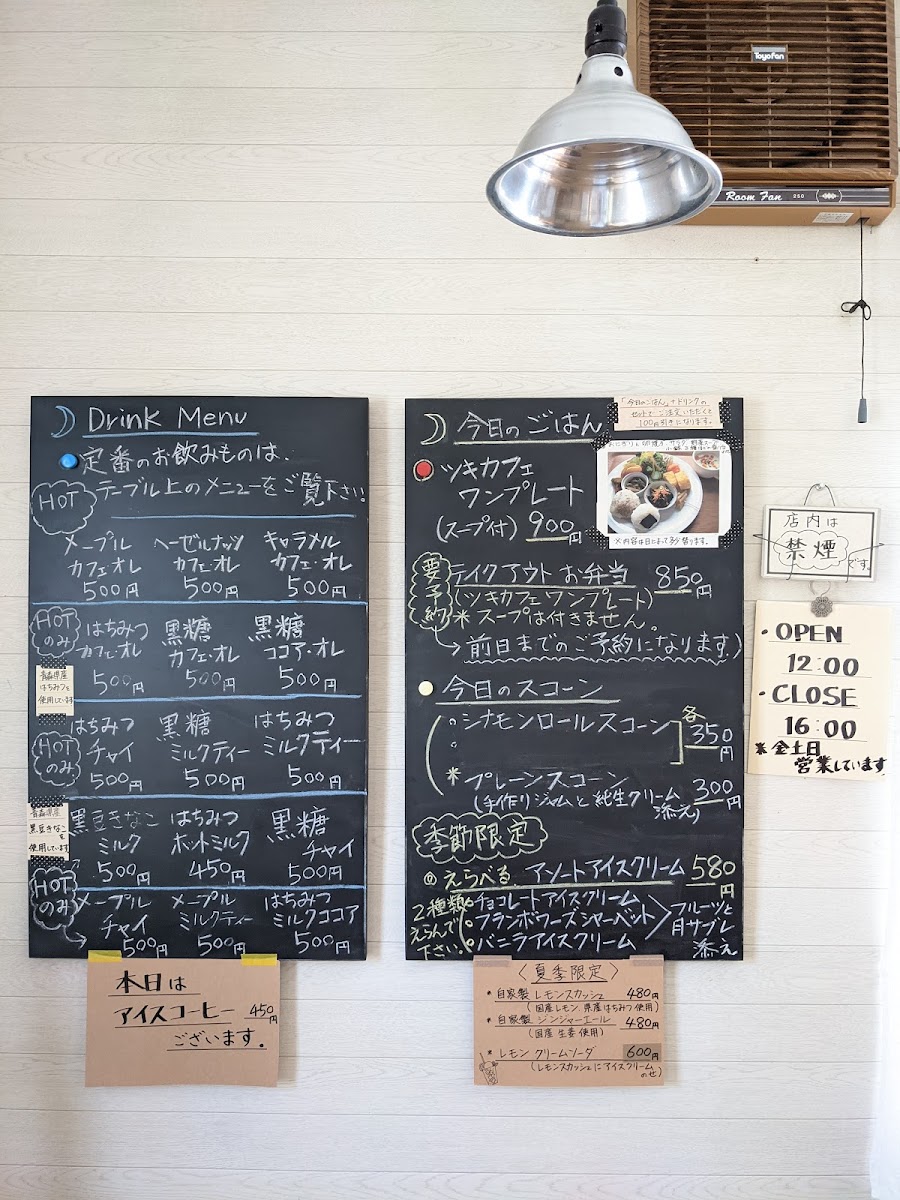 Toyofan
Room Fan 250
Drink Menu
定番のお飲みものは、
テーブル上のメニューをご覧下さい!
HOT
メープル
カフェオレ
500円
ヘーゼルナッツ
カフェ・オレ
500円
キャラメル
カフェ・オレ
500円
HOT
のみ
はちみつ
カフェ・オレ
500円
黒糖
カフェ・オレ
500円
黒糖
ココア・オレ
500円
青森県産
はちみつを
使用しています
HOT
のみ
はちみつ
チャイ
500円
黒糖
ミルクティー
500円
はちみつ
ミルクティー
500円
青森県産
黒豆きなこ
を
使用しています
黒豆きなこ
ミルク
500円
はちみつ
ホットミルク
450円
黒糖
チャイ
500円
HOT
のみ
メープル
チャイ
500円
メープル
ミルクティー
500円
はちみつ
ミルクココア
500円
本日は
アイスコーヒー 450円
ございます。
今日のごはん
「今日のごはん」+ドリンクの
セットで ご注文いただくと
100円引きになります。
ツキカフェ
ワンプレート
(スープ付) 900円
※内容は日によって多少替ります。
要予約
テイクアウト お弁当 850円
(ツキカフェワンプレート)
※スープは付きません。
→前日までのご予約になります)
今日のスコーン
シナモンロールスコーン
各350円
* プレーンスコーン 300円
(手作りジャムと純生クリーム
添え)
季節限定
えらべる アソートアイスクリーム 580円
2種類
えらんで
下さい。
チョコレートアイスクリーム
フランボワーズシャーベット
バニラアイスクリーム
フルーツと
月サブレ
添え
〈夏季限定〉
・自家製 レモンスカッシュ 480円
(国産レモン、県産はちみつ使用)
・自家製 ジンジャーエール 480円
(国産生姜使用)
* レモン クリームソーダ 600円
(レモンスカッシュにアイスクリーム
のせ)
店内は
禁煙
です。
・OPEN
12:00
・CLOSE
16:00
※金土日
営業しています